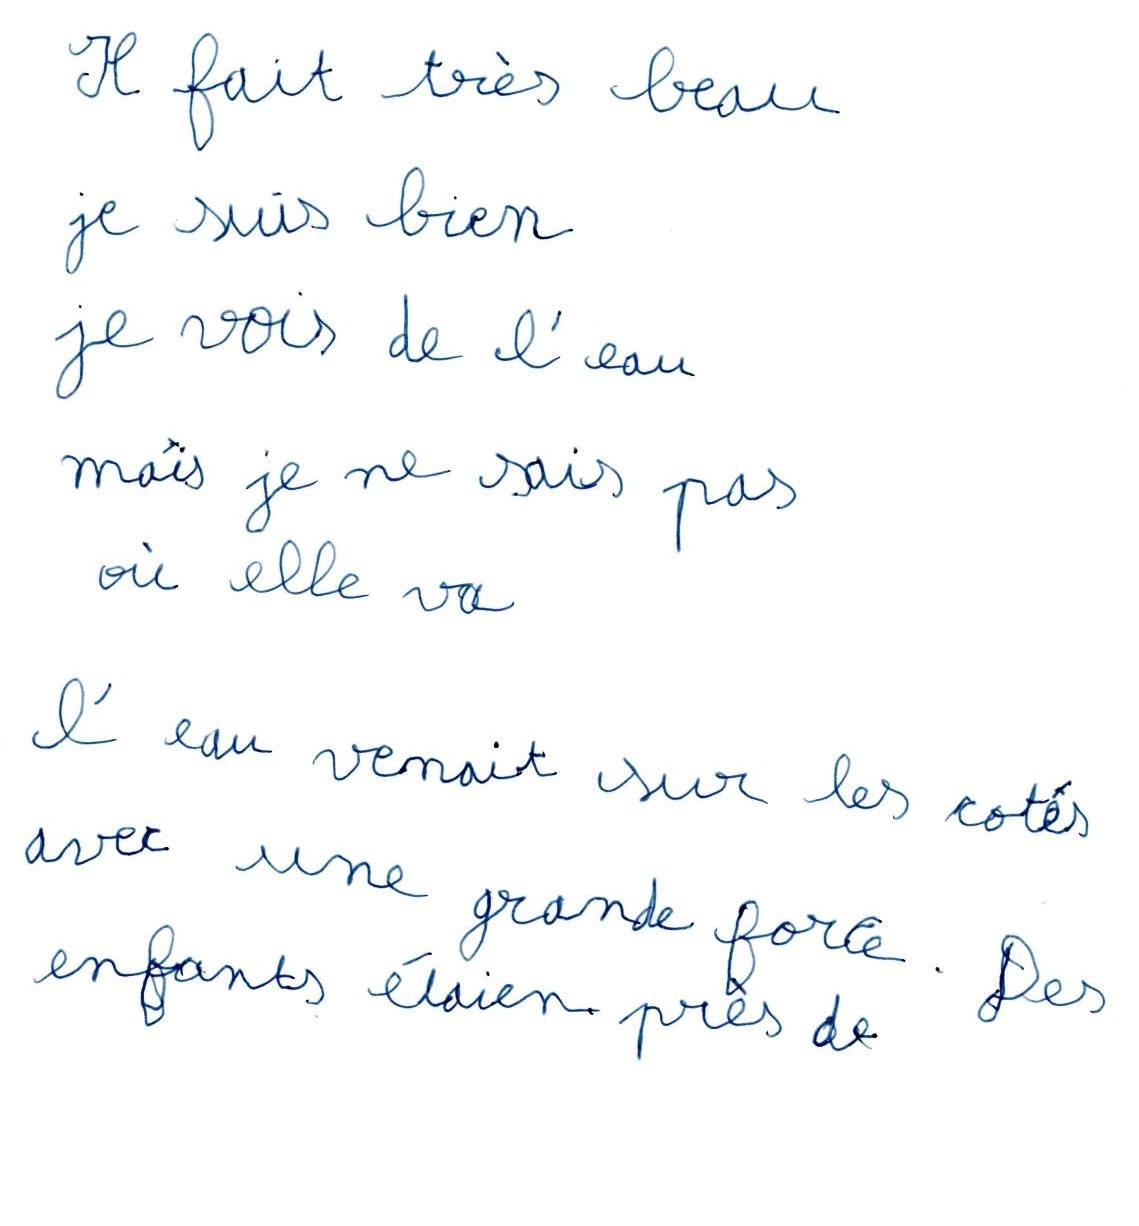 Il fait très beau
je suis bien
je vois de l'eau
maîs je ne sais pas
où elle va
l'eau venait sur les cotés
avec une grande force. Des
enfants étaien près de